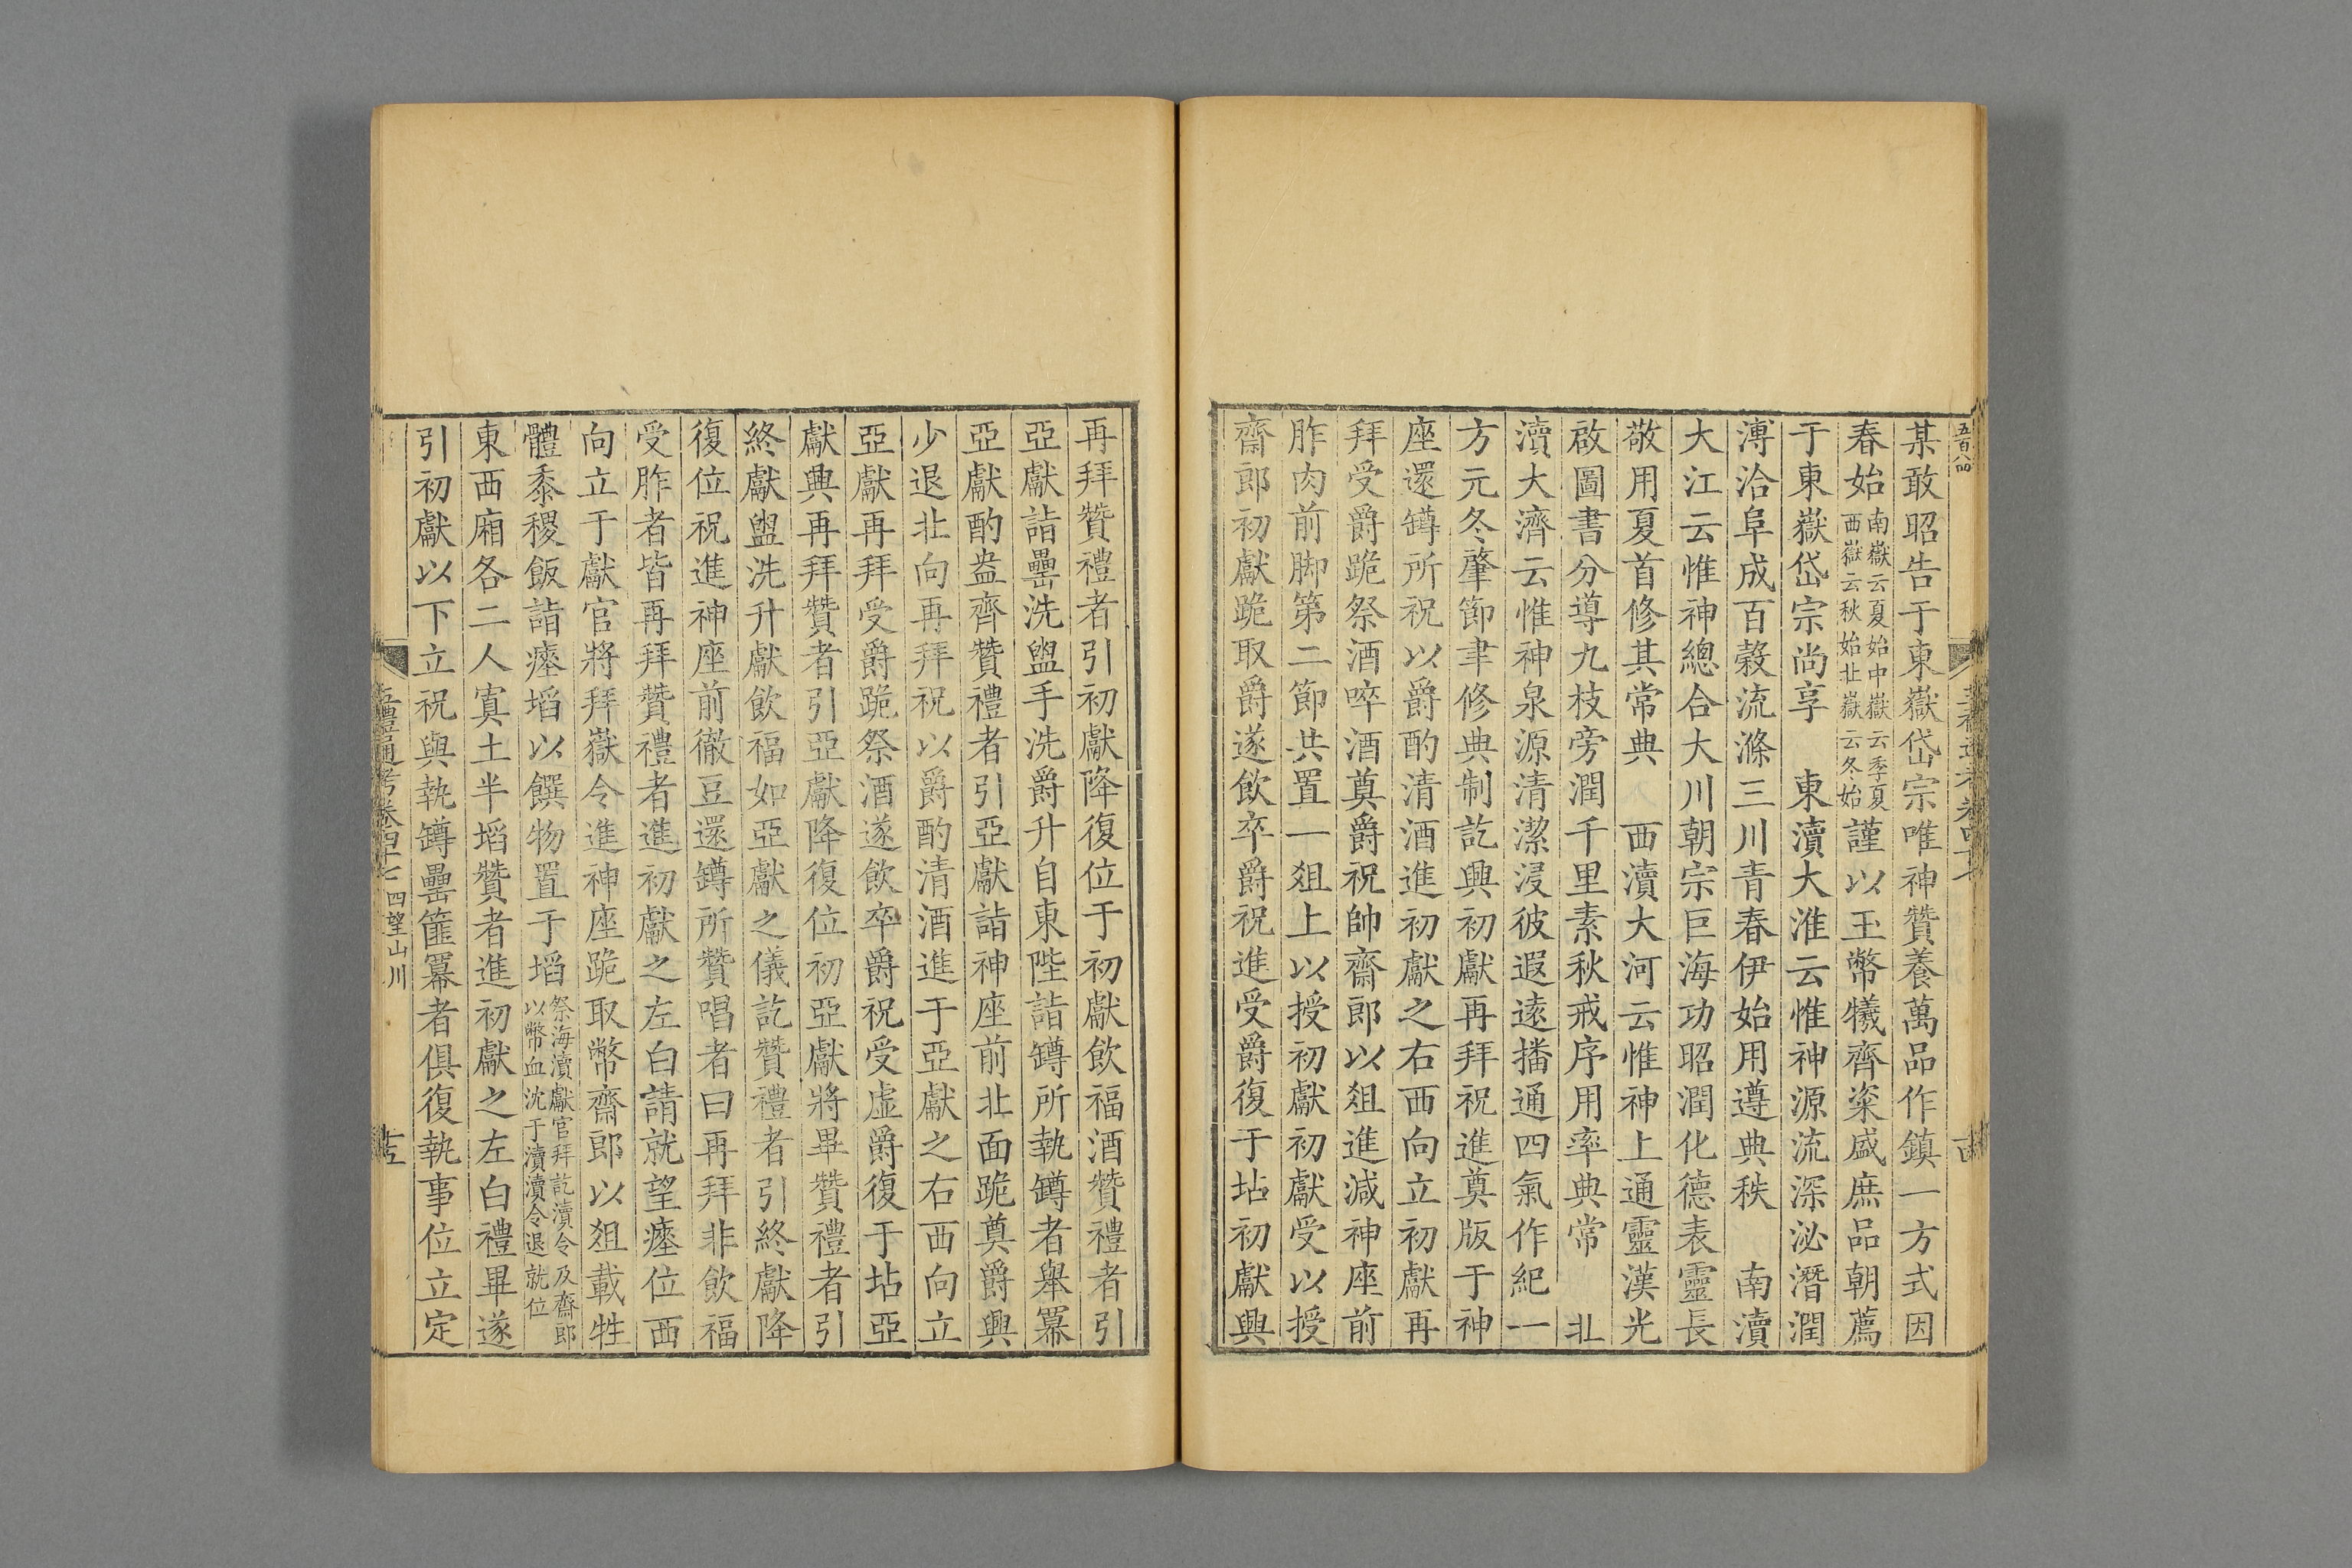 某敢昭告于東嶽岱宗唯神贊養萬品作鎮一方式因
春始南嶽云夏始中嶽云季夏西嶽云秋始北嶽云冬始謹以玉幣犧齊粢盛庶品朝薦
于東嶽岱宗尚享 東瀆大淮云惟神源流深泌潛潤
溥洽阜成百穀流滌三川青春伊始用遵典秩 南瀆
大江云惟神總合大川朝宗巨海功昭潤化德表靈長
敬用夏首修其常典 西瀆大河云惟神上通靈漢光
啟圖書分導九枝旁潤千里素秋戒序用率典常 北
瀆大濟云惟神泉源清潔浸彼遐遠播通四氣作紀一
方元冬肇節聿修典制訖興初獻再拜祝進奠版于神
座還罇所祝以爵酌清酒進初獻之右西向立初獻再
拜受爵跪祭酒啐酒奠爵祝帥齋郎以俎進減神座前
胙肉前脚第二節共置一俎上以授初獻初獻受以授
齋郎初獻跪取爵遂飲卒爵祝進受爵復于坫初獻興
再拜贊禮者引初獻降復位于初獻飲福酒贊禮者引
亞獻詣罍洗盥手洗爵升自東陛詣罇所執罇者舉冪
亞獻酌盎齊贊禮者引亞獻詣神座前北面跪奠爵興
少退北向再拜祝以爵酌清酒進于亞獻之右西向立
亞獻再拜受爵跪祭酒遂飲卒爵祝受虛爵復于坫亞
獻興再拜贊者引亞獻降復位初亞獻將畢贊禮者引
終獻盥洗升獻飲福如亞獻之儀訖贊禮者引終獻降
復位祝進神座前徹豆還罇所贊唱者曰再拜非飲福
受胙者皆再拜贊禮者進初獻之左白請就望瘞位西
向立于獻官將拜嶽令進神座跪取幣齋郎以俎載牲
體黍稷飯詣瘞埳以饌物置于埳祭海瀆獻官拜訖瀆令及齋郎以幣血沈于瀆瀆令退就位
東西廂各二人寘土半埳贊者進初獻之左白禮畢遂
引初獻以下立祝與執罇罍篚冪者俱復執事位立定
五禮通考卷四十七 四望山川